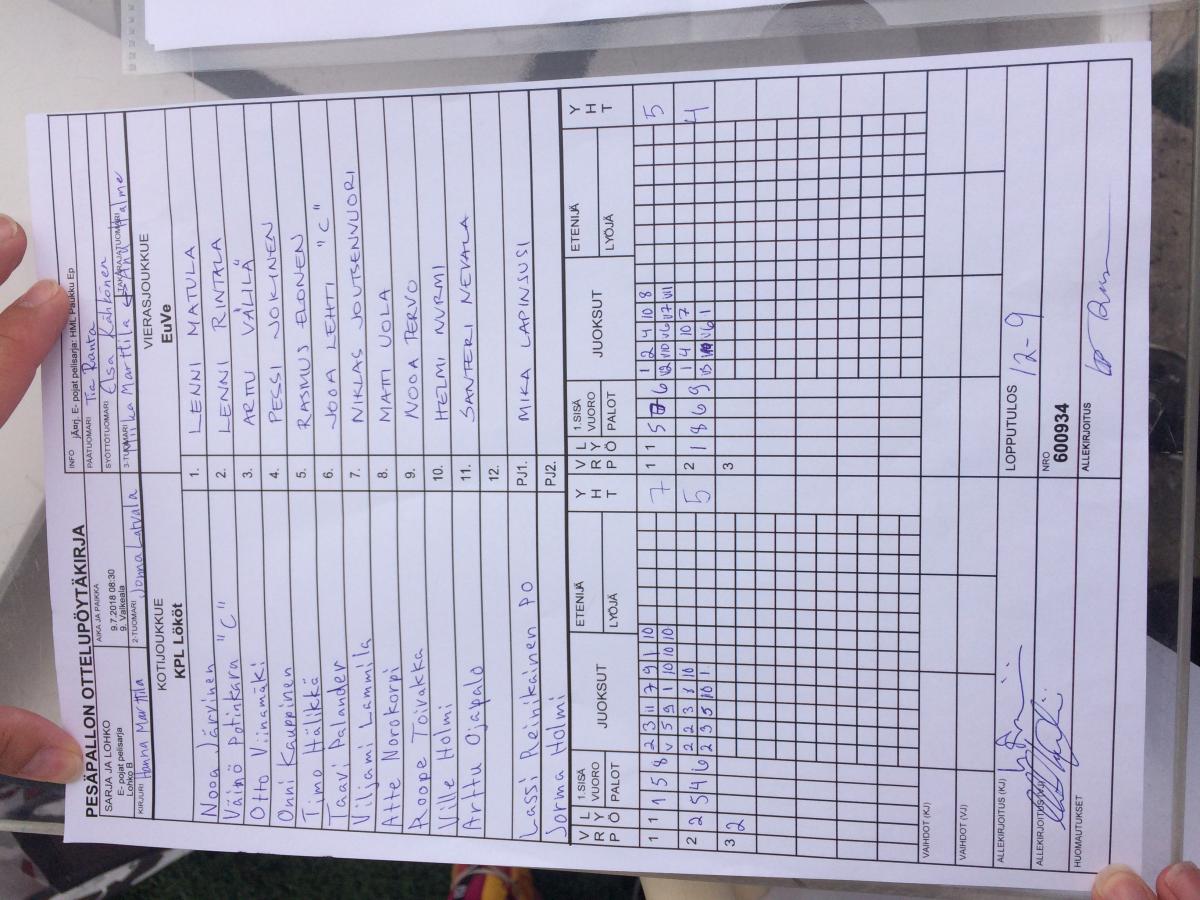 PESÄPALLON OTTELUPÖYTÄKIRJA
SARJA JA LOHKO
E- pojat pelisarja
Lohko B
AIKA JA PAIKKA
9.7.2018 08:30
9. Valkeala
INFO
E- pojat pelisarja: HML Paukku Ep
PÄÄTUOMARI Tia Ranta
SYÖTTÖTUOMARI Elsa Kähkönen
KIRJURI Hanna Marttila
2-TUOMARI Jonna Latvala
3-TUOMARI Miika Marttila
TAKARAJATUOMARI Anu Halme
KOTIJOUKKUE
KPL Lököt
VIERASJOUKKUE
EuVe
Nooa Järvinen 1. LENNI MATULA
Väinö Potinkara "C" 2. LENNI RINTALA
Otto Viinamäki 3. ARTTU VÄLILÄ
Onni Kauppinen 4. PESSI JOKINEN
Timo Hälikkä 5. RASMUS ELONEN
Taavi Palander 6. JOOA LEHTI "C"
Viljami Lammila 7. NIKLAS JOUTSENVUORI
Atte Norokorpi 8. MATI UOLA
Roope Toivakka 9. NOOA TERVO
Ville Holmi 10. HELMI NURMI
Arttu Ojapalo 11. SANTERI NEVALA
12.
Lassi Reinikainen PO PJ1. MIKA LAPINSUSI
Jorma Holmi PJ2.
V R P L Y Ö 1.SISÄ VUORO PALOT JUOKSUT ETENIJÄ LYÖJÄ Y H T V R P L Y Ö 1.SISÄ VUORO PALOT JUOKSUT ETENIJÄ LYÖJÄ Y H T
1 1 1 5 8 2 3 11 7 9 1 10 7 1 1 5 6 1 2 4 10 8 5
V 5 9 1 10 10 10 V2 V10 V6 V7 V11
2 2 5 4 6 2 2 3 10 5 2 1 8 6 9 1 4 10 7 4
2 3 5 10 1 V3 V6 1
3 2 3
VAIHDOT (KJ)
VAIHDOT (VJ)
ALLEKIRJOITUS (KJ)
LOPPUTULOS 12-9
ALLEKIRJOITUS (VJ)
NRO
600934
HUOMAUTUKSET
ALLEKIRJOITUS